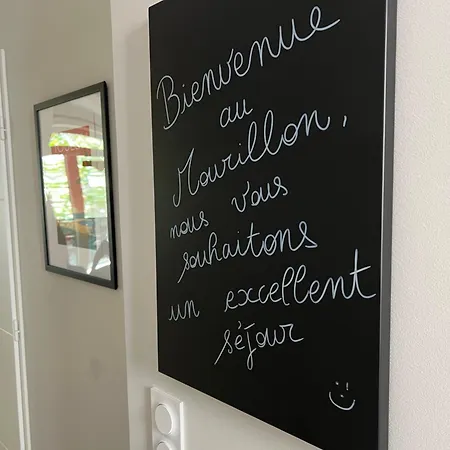 Bienvenue
au
Mourillon,
nous vous
souhaitons
un excellent
séjour